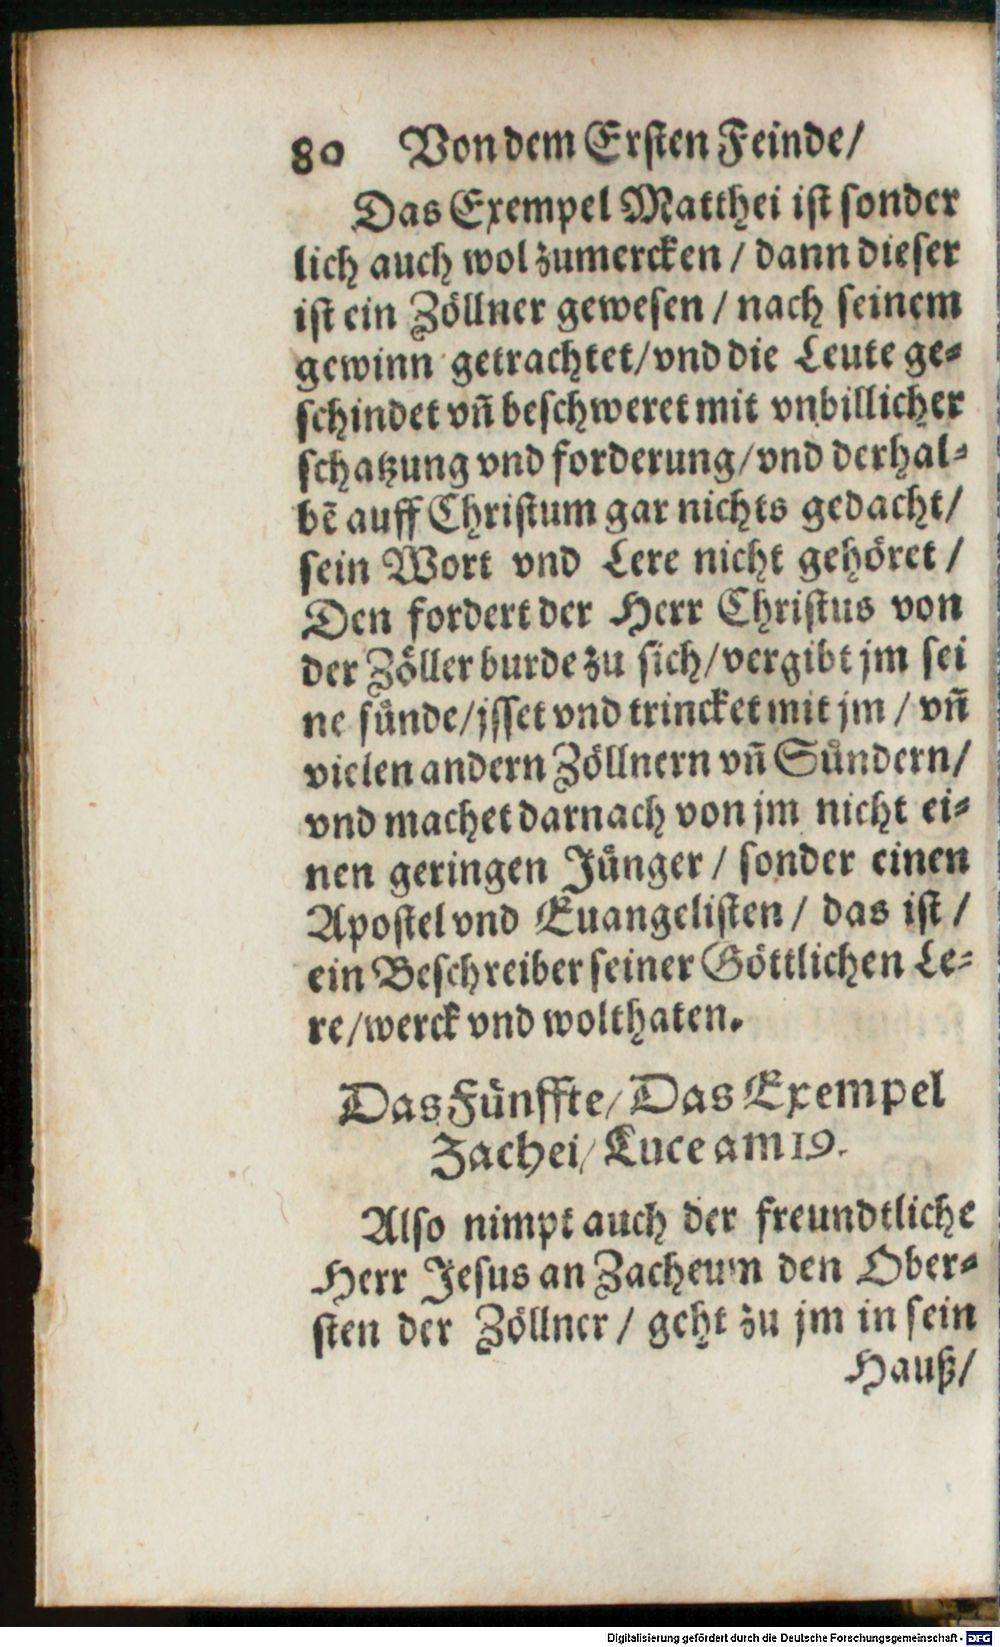 80 Von dem Ersten Feinde/
Das Exempel Matthei ist sonder
lich auch wol zumercken / dann dieser
ist ein Zöllner gewesen / nach seinem
gewinn getrachtet/vnd die Leute ge-
schindet vn̄ beschweret mit vnbillicher
schatzung vnd forderung/vnd derhal-
bē auff Christum gar nichts gedacht/
sein Wort vnd Lere nicht gehöret /
Den fordert der Herr Christus von
der Zöller burde zu sich/vergibt jm sei
ne sünde/jsset vnd trincket mit jm / vn̄
vielen andern Zöllnern vn̄ Sündern/
vnd machet darnach von jm nicht ei-
nen geringen Jünger / sonder einen
Apostel vnd Euangelisten / das ist /
ein Beschreiber seiner Göttlichen Le-
re/werck vnd wolthaten.
Das Fünffte/ Das Exempel
Zachei/ Luce am 19.
Also nimpt auch der freundtliche
Herr Jesus an Zacheum den Ober-
sten der Zöllner / geht zu jm in sein
Hauß/
Digitalisierung gefördert durch die Deutsche Forschungsgemeinschaft - DFG